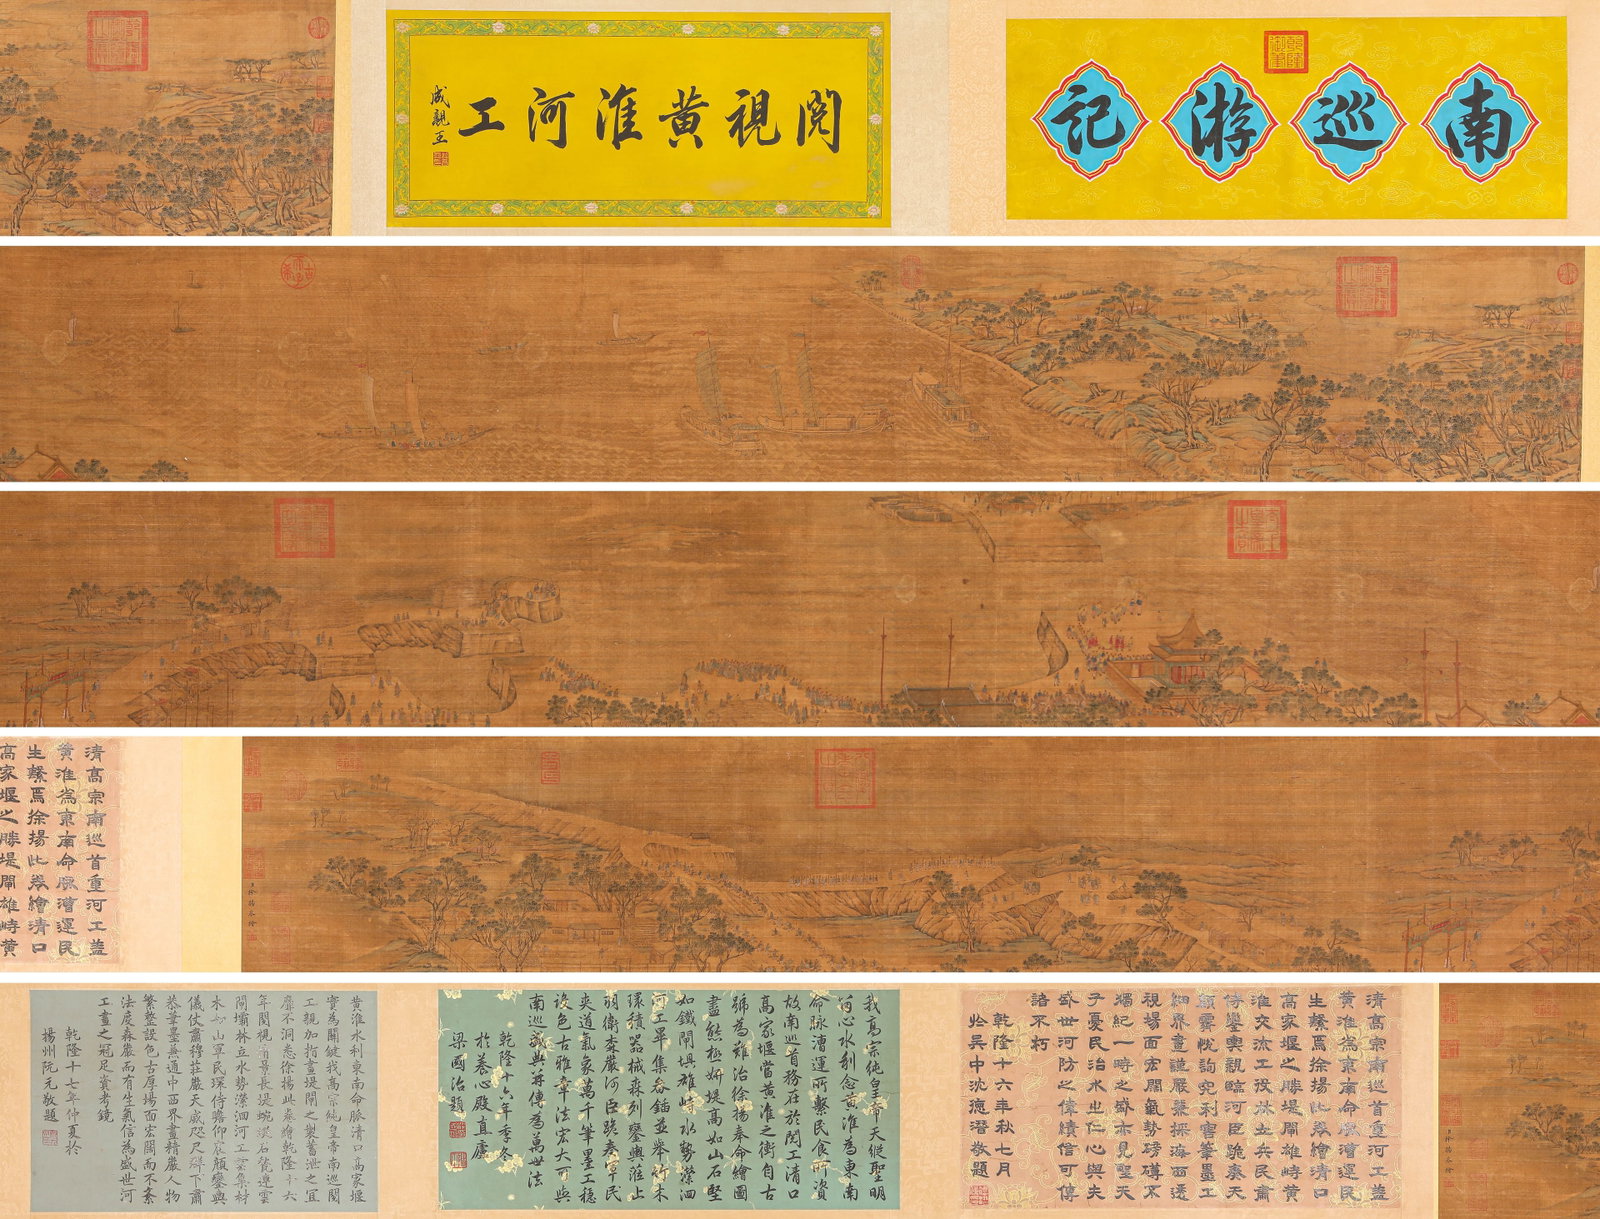 南巡游記
閱視黄淮河工
成親王
清高宗南巡首重河工蓋
黄淮為東南命脉漕運民
生繫焉徐揚此卷繪清口
高家堰之勝堤閘雄峙黄
臣徐揚恭繪
清高宗南巡首重河工蓋
黄淮為東南命脉漕運民
生繫焉徐揚此卷繪清口
高家堰之勝堤閘雄峙黄
淮交流工役林立兵民肅
侍鑾輿親臨河臣跪奏天
顏霽悅詢究利害筆墨工
細界畫謹嚴兼採海西透
視場面宏闊氣勢磅礴不
獨紀一時之盛亦見聖天
子憂民治水之仁心與夫
盛世河防之偉績信可傳
諸不朽
乾隆十六年秋七月
於吳中沈德潛敬題
我高宗純皇帝天縱聖明
留心水利念黄淮為東南
命脉漕運所繫民食所資
故南巡首務在於閱工清口
高家堰當黄淮之衝自古
號為難治徐揚奉命繪圖
盡態極妍堤高如山石堅
如鐵閘壩雄峙水勢瀠洄
河工畢集畚鍤並舉竹木
環積器械森列鑾輿蒞止
羽衛森嚴河臣跪奏軍民
夾道氣象萬千筆墨工穩
設色古雅章法宏大可與
南巡盛典並傳為萬世法
乾隆十六年季冬
於養心殿直廬
梁國治題
黄淮水利東南命脉清口高家堰
實為關鍵我高宗純皇帝南巡閱
工親加指畫堤閘之製蓄泄之宜
靡不洞悉徐揚此卷繪乾隆十六
年閱視情景長堤蜿蜒石甃連雲
閘壩林立水勢瀠洄河工雲集材
木如山軍民環侍瞻仰宸顏鑾輿
儀仗肅穆莊嚴天威咫尺群下肅
恭筆墨兼通中西界畫精嚴人物
繁整設色古厚場面宏闊而不紊
法度森嚴而有生氣信為盛世河
工畫之冠足資考鏡
乾隆十七年仲夏於
揚州阮元敬題